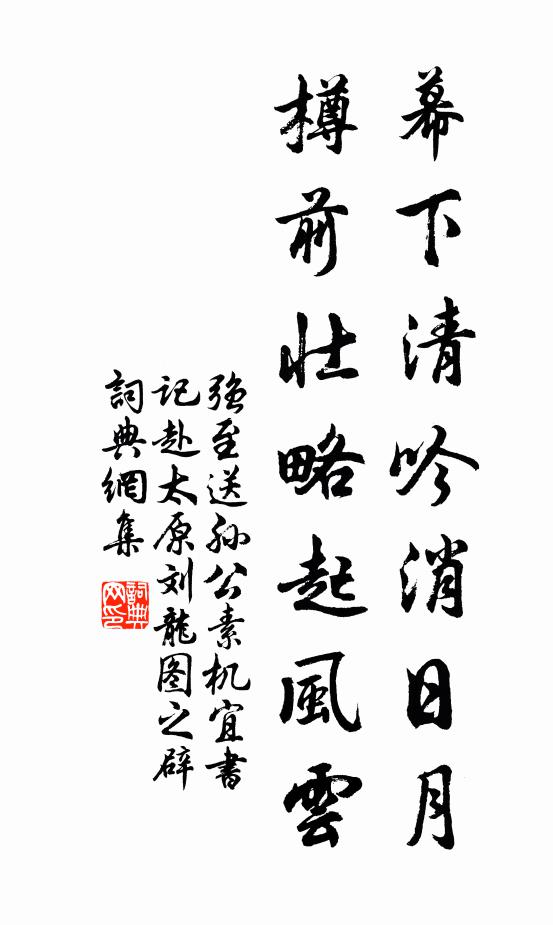 幕下清吟消日月
樽前壮略起風雲
强至送孙公素机宜書
记赴太原刘龍图之辟
詞典網集
詞典
网印